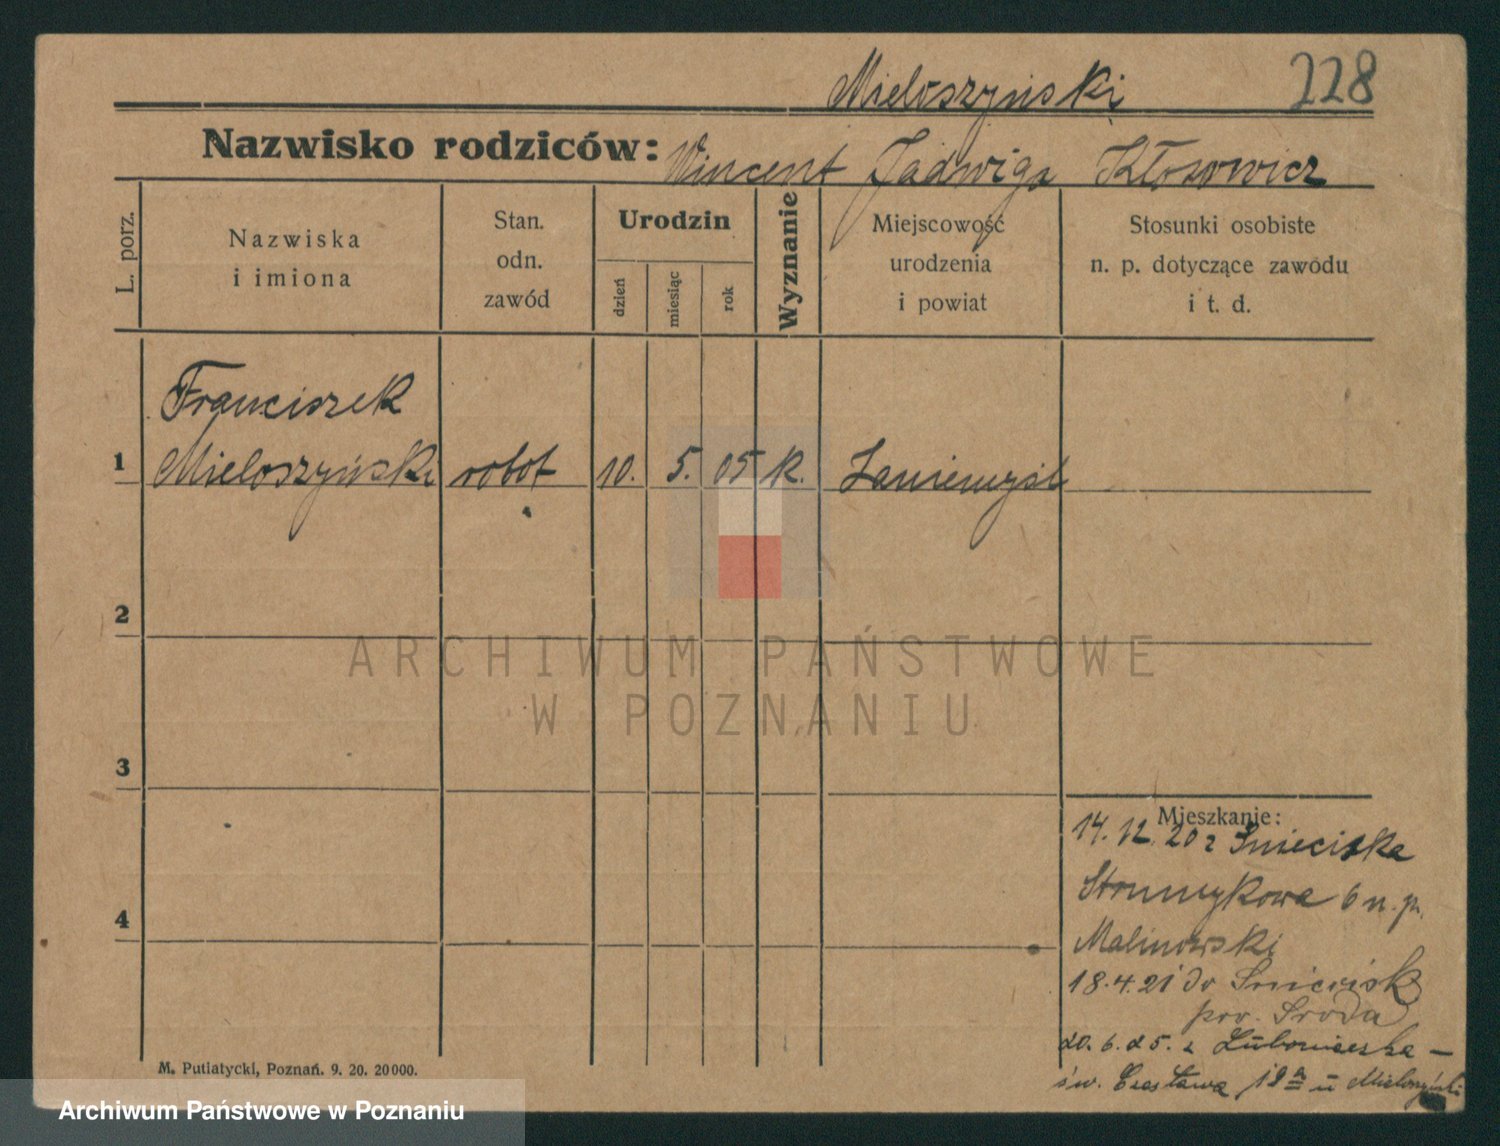 Mieloszyński 228
Nazwisko rodziców: Wincent Jadwiga Kłosowicz
L. porz.
Nazwiska
i imiona
Stan.
odn.
zawód
Urodzin
dzień
miesiąc
rok
Wyznanie
Miejscowość
urodzenia
i powiat
Stosunki osobiste
n. p. dotyczące zawodu
i t. d.
Franciszek
1 Mieloszyński robot 10. 5. 05 k. Zaniemyśl
2
3
4
Mieszkanie:
14.12.20 z Śnieciska
Strumykowa 6 u. p.
Malinowski
18.4.21 do Śniecisk
pow. Środa
20.6.25. z
św. Czesława 12 u Mieloszyński
M. Putiatycki, Poznań. 9. 20. 20000.
ARCHIWUM PAŃSTWOWE
W POZNANIU
Archiwum Państwowe w Poznaniu